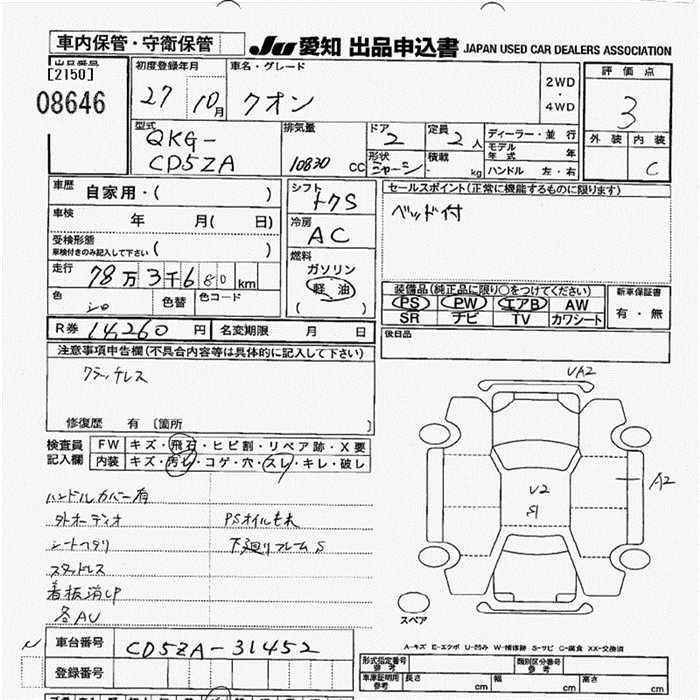 車内保管・守衛保管
JU 愛知 出品申込書 JAPAN USED CAR DEALERS ASSOCIATION
出品番号
[2150]
08646
初度登録年月
27 10月
車名・グレード
クオン
2WD
・
4WD
評価点
3
外装 内装
C
型式
QKG-
CD5ZA
排気量
10830 CC
ドア
2
形状
シャーシ
定員
2人
積載
- kg
ディーラー・並行
モデル年式 年
ハンドル 左・右
車歴
自家用・( )
車検
年 月( 日)
受検形態
車検付きのみ記入して下さい ( )
走行
78万3千680km
色
シロ
色替
色コード
シフト
トクS
冷房
AC
燃料
ガソリン
軽油
( )
セールスポイント(正常に機能するものに限ります)
ベッド付
装備品(純正品に限り○をつけてください)
PS PW エアB AW
SR ナビ TV カワシート
新車保証書
有・無
R券 14,260円
名変期限 月 日
後日品
注意事項申告欄(不具合内容等は具体的に記入して下さい)
クラッチレス
修復歴 有 〔箇所 〕
検査員
記入欄
FW キズ・飛石・ヒビ割・リペア跡・X要
内装 キズ・汚レ・コゲ・穴・スレ・キレ・破し
ハンドルカバー有
外オーディオ
PSオイルもれ
シートヘタリ
下廻りフレームS
スタッドレス
看板消しP
各AU
VA2
V2
S1
A2
スペア
A-キズ E-エクボ U-凹み W-補修跡 S-サビ C-腐食 XX-交換済
車台番号
CD5ZA-31452
登録番号
形式指定番号
参考
類別区分番号
参考
車庫証明用
参考
長さ cm
幅 cm
高さ cm